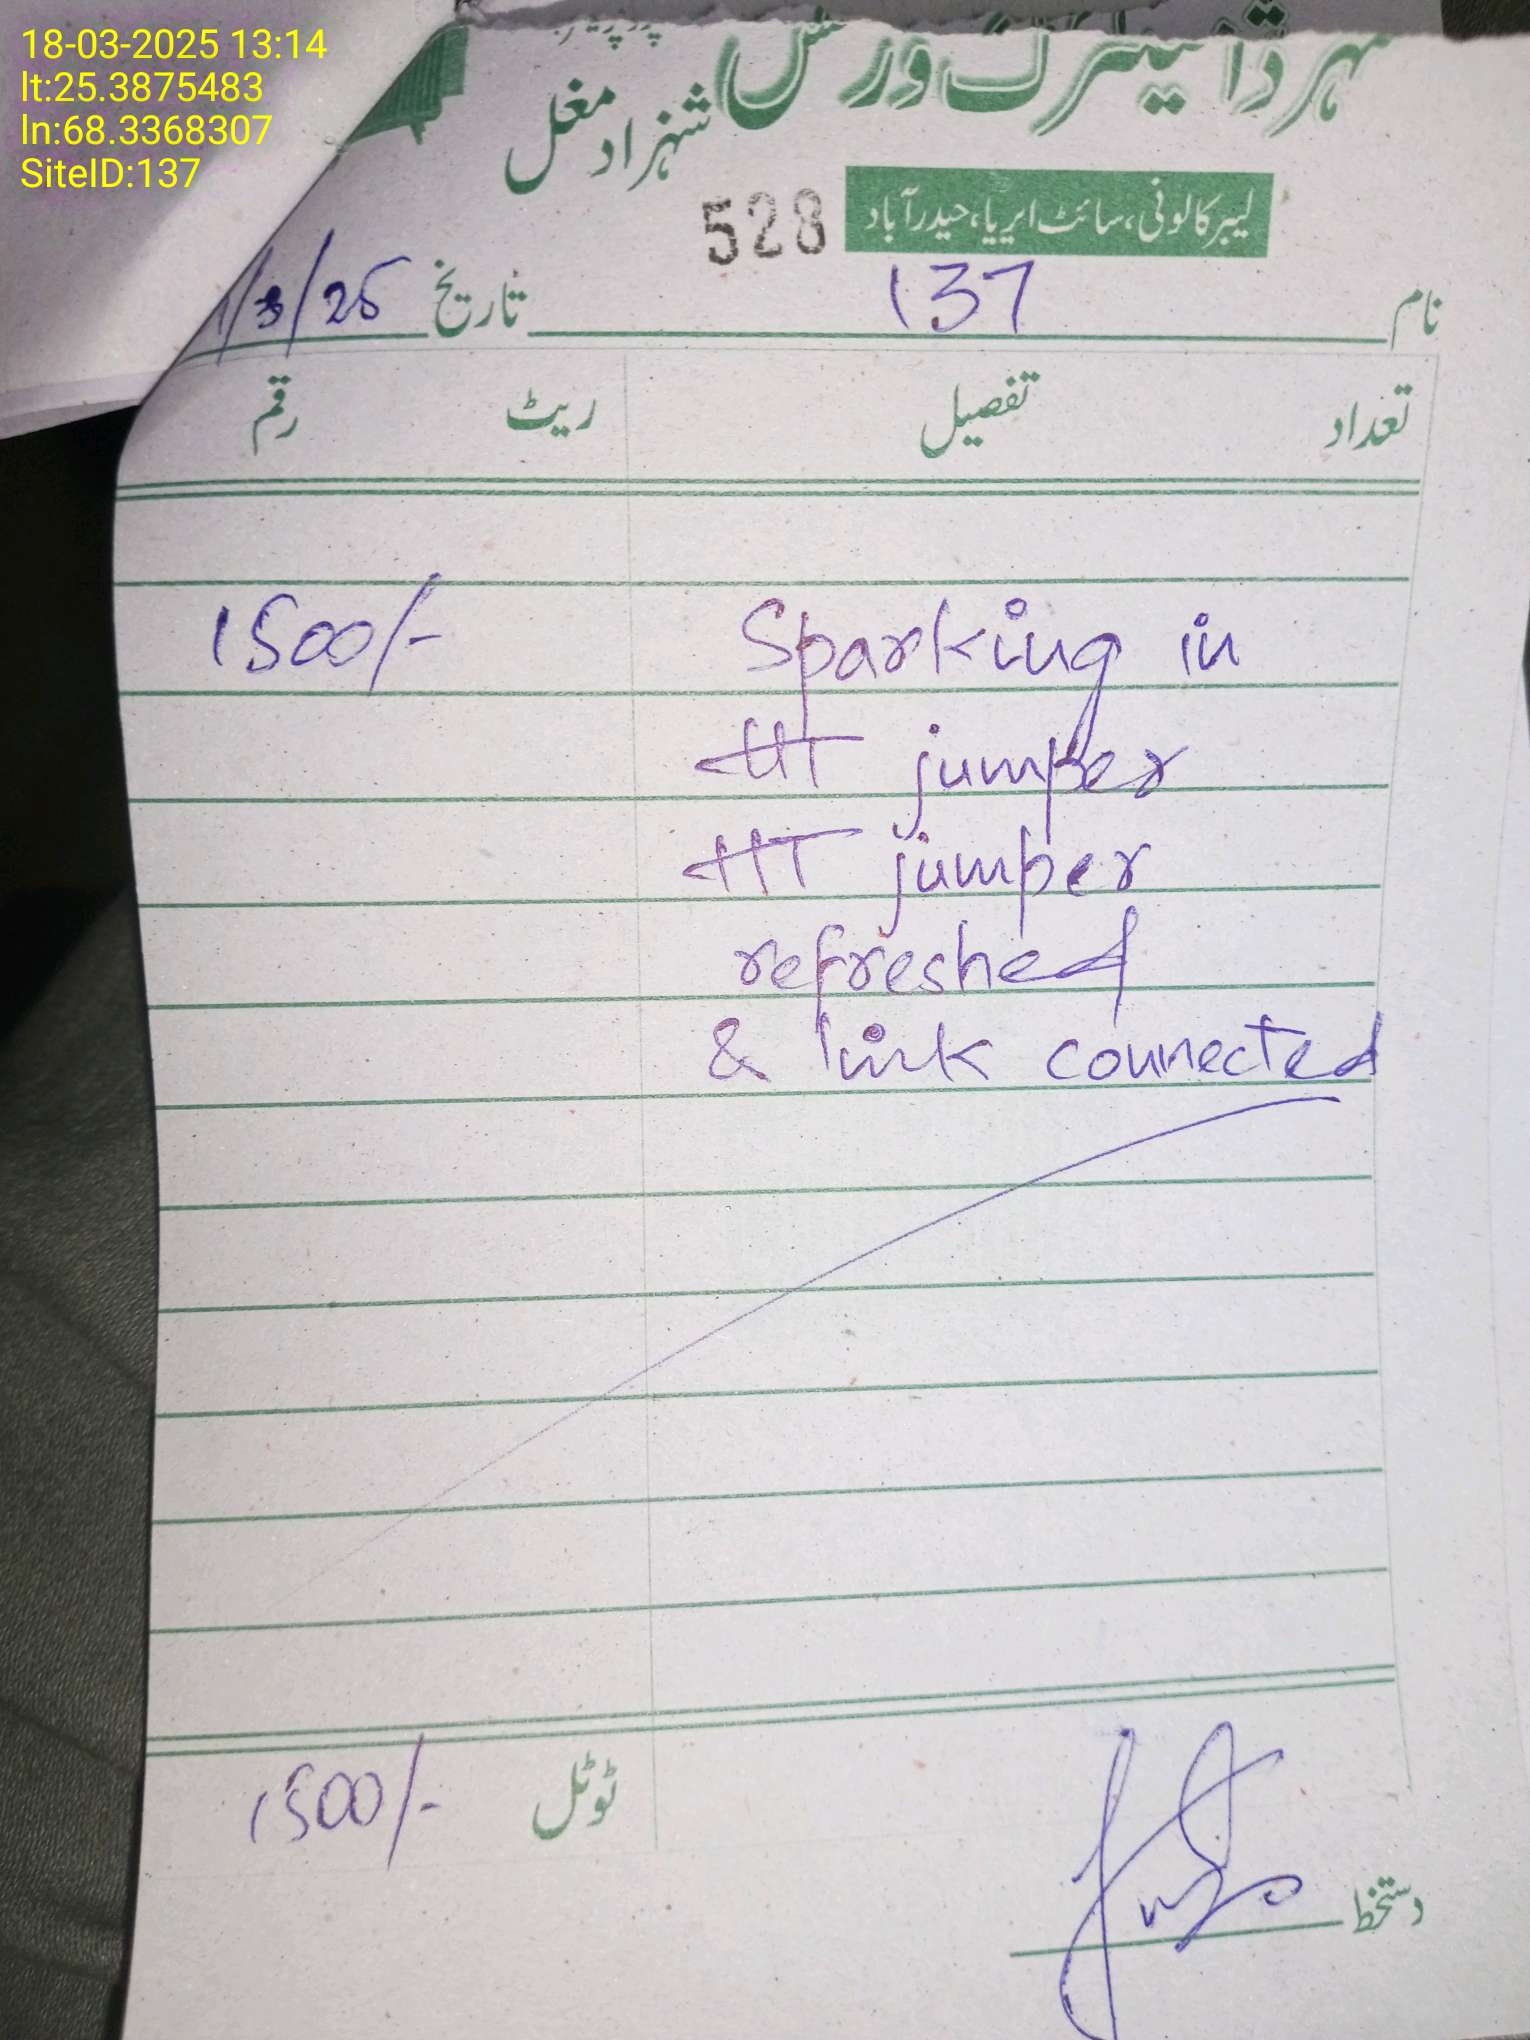 18-03-2025 13:14
lt:25.3875483
ln:68.3368307
SiteID:137
الیکٹرک ورکس
شہزاد مغل
لیبر کالونی، سائٹ ایریا، حیدرآباد
528
نام 137 تاریخ /3/25
تعداد تفصیل ریٹ رقم
Sparking in 1500/-
HT jumper
HT jumper
refreshed
& link connected
ٹوٹل 1500/-
دستخط